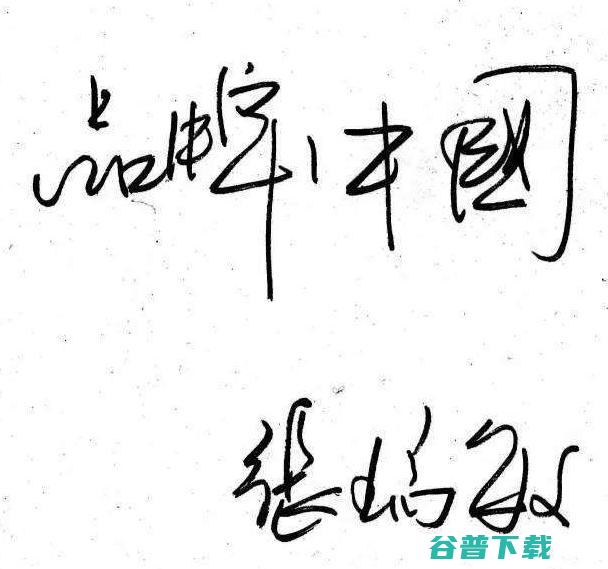 品牌中國
张瑞敏
谷普下载